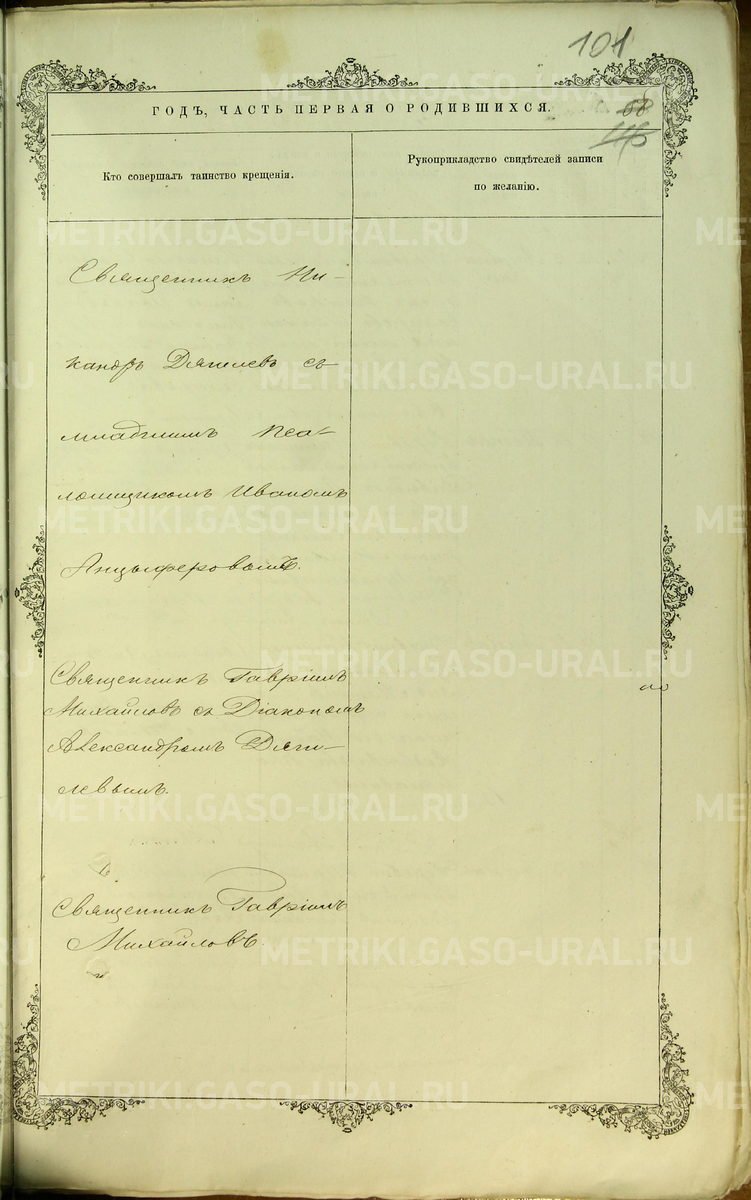 101
ГОДЪ, ЧАСТЬ ПЕРВАЯ О РОДИВШИХСЯ.
68
Кто совершалъ таинство крещенія.
Рукоприкладство свидѣтелей записи
по желанію.
Священникъ Ни-
кандръ Дягилевъ съ
младшимъ Пса-
ломщикомъ Иваномъ
Анцыферовымъ.
Священникъ Гавріилъ
Михайловъ съ Діакономъ
Александромъ Дяги-
левымъ.
Священникъ Гавріилъ
Михайловъ.
METRIKI.GASO-URAL.RU